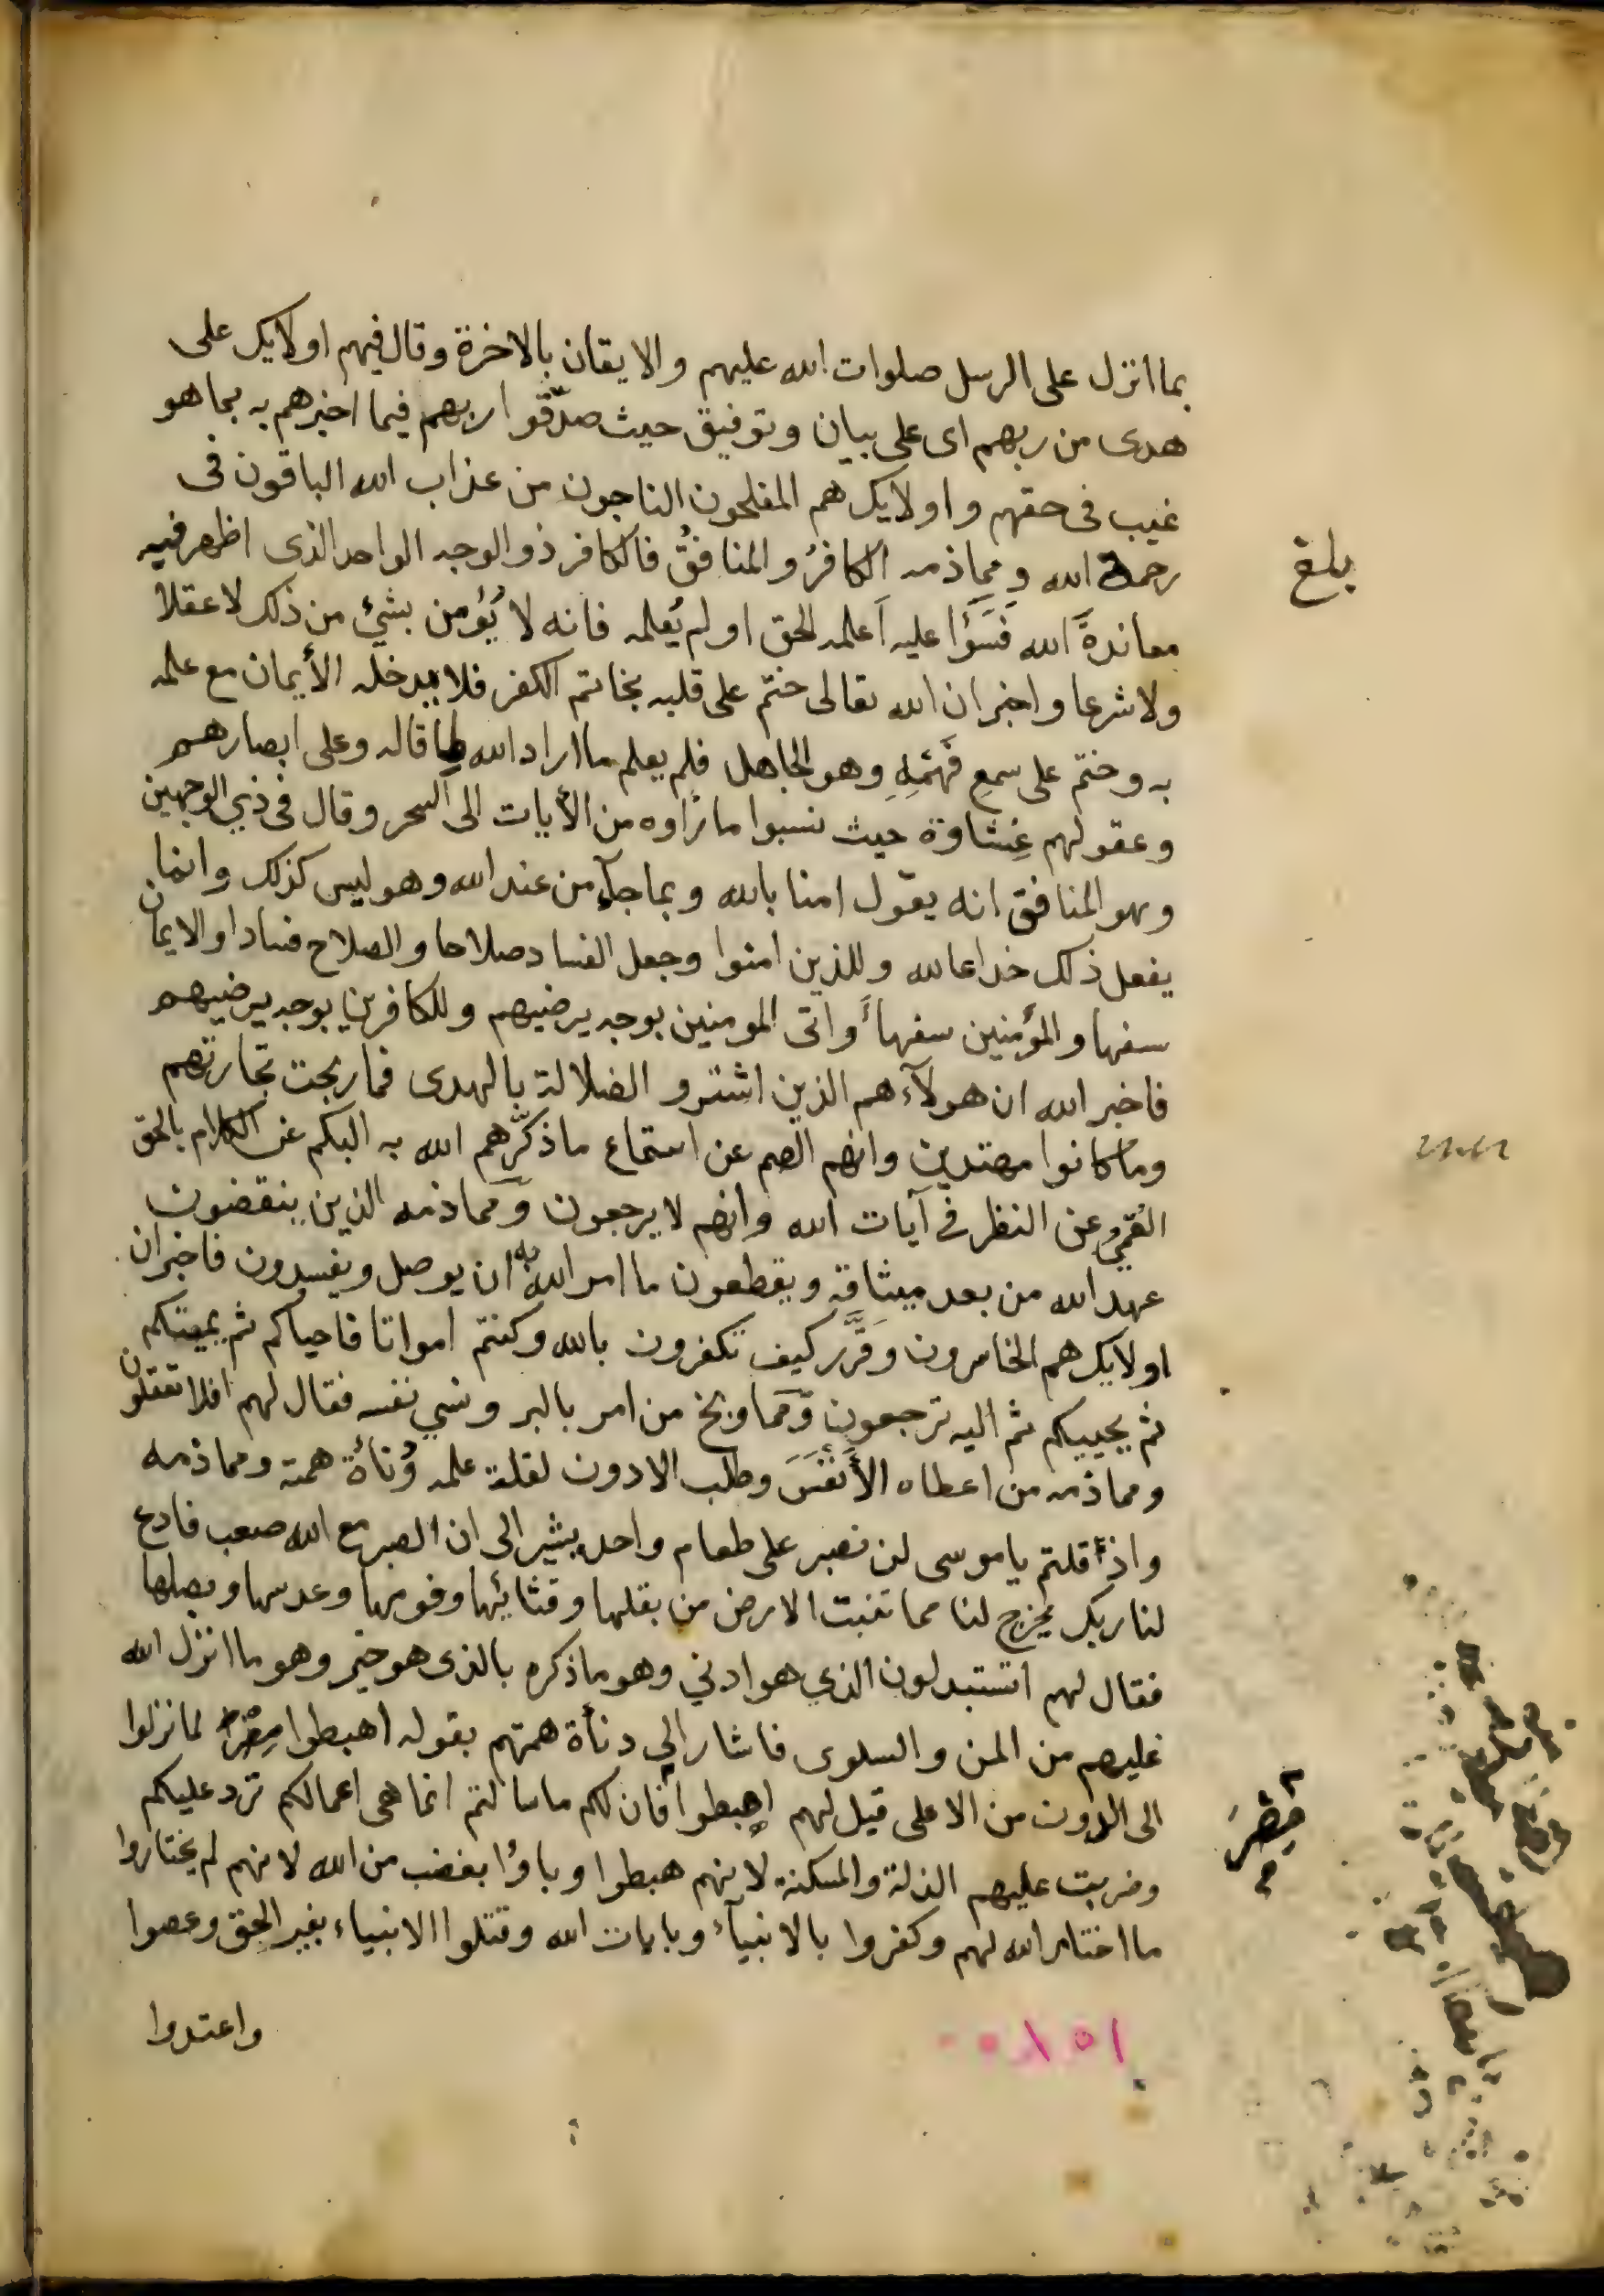 بما انزل على الرسل صلوات الله عليهم والايقان بالاخرة وقال فيهم اولايك على
هدى من ربهم اى على بيان وتوفيق حيث صدّقوا ربهم فيما اخبرهم به بما هو
غيب فى حقهم واولايك هم المفلحون الناجون من عذاب الله الباقون فى
رحمة الله ومما ذمه الكافرُ والمنافقُ فالكافر ذو الوجه الواحد الذى اظهر فيه
معاندةَ الله فَسَوَٓا عليه اَعلمه الحق او لم يُعلمه فانه لا يُؤمن بشئ من ذلك لا عقلا
ولا شرعا واخبر ان الله تعالى ختم على قلبه بخاتم الكفر فلا يدخله الأيمان مع علمه
به وختم على سمع فَهْمِهِ وهو الجاهل فلم يعلم ما اراد الله لما قاله وعلى ابصارهم
وعقولهم غِشاوة حيث نسبوا ما رَاوه من الأيات الى السحر وقال فى ذي الوجهين
وهو المنافق انه يقول امنا بالله وبما جآء من عند الله وهو ليس كذلك وانما
يفعل ذلك خداعا لله وللذين امنوا وجعل الفساد صلاحا والصلاح فسادا والايمان
سفها والمؤمنين سفهأَ واتى المومنين بوجه يرضيهم وللكافرين بوجه يرضيهم
فاخبر الله ان هولآء هم الذين اشترو الضلالة بالهدى فما ربحت تجارتهم
وما كانوا مهتدين وانهم الصم عن استماع ما ذكّرهم الله به البكم عن الكلام بالحق
العُمي عن النظر في آيات الله وانهم لا يرجعون ومما ذمه الذين ينقضون
عهد الله من بعد ميثاقه ويقطعون ما امر الله به ان يوصل ويفسدون فاخبر ان
اولايك هم الخاسرون وقَرَّر كيف تكفرون بالله وكنتم امواتا فاحياكم ثم يميتكم
ثم يحييكم ثم اليه ترجعون ومما وبخ من امر بالبر ونسي نفسه فقال لهم افلا تعقلون
ومما ذمه من اعطاه الأَنْفَسَ وطلب الادون لقلة علمه ودُنأة همته ومما ذمه
واذ قلتم ياموسى لن نصبر على طعام واحد يشير الى ان الصبر مع الله صعب فادع
لنا ربك يخرج لنا مما تنبت الارض من بقلها وقثائها وفومها وعدسها وبصلها
فقال لهم اتستبدلون الذي هو ادني وهو ما ذكره بالذى هو خير وهو ما انزل الله
عليهم من المن والسلوى فاشار الى دنأة همتهم بقوله اهبطوا مِصْرًا لما نزلوا
الى الدون من الاعلى قيل لهم اهبطوا فان لكم ما سالتم انما هى اعمالكم ترد عليكم
وضربت عليهم الذلة والمسكنة لانهم هبطوا وباؤا بغضب من الله لانهم لم يختاروا
ما اختار الله لهم وكفروا بالانبيآء وبايات الله وقتلوا الانبياء بغير الحق وعصوا
واعتدوا
بلغ
مِصْرَ